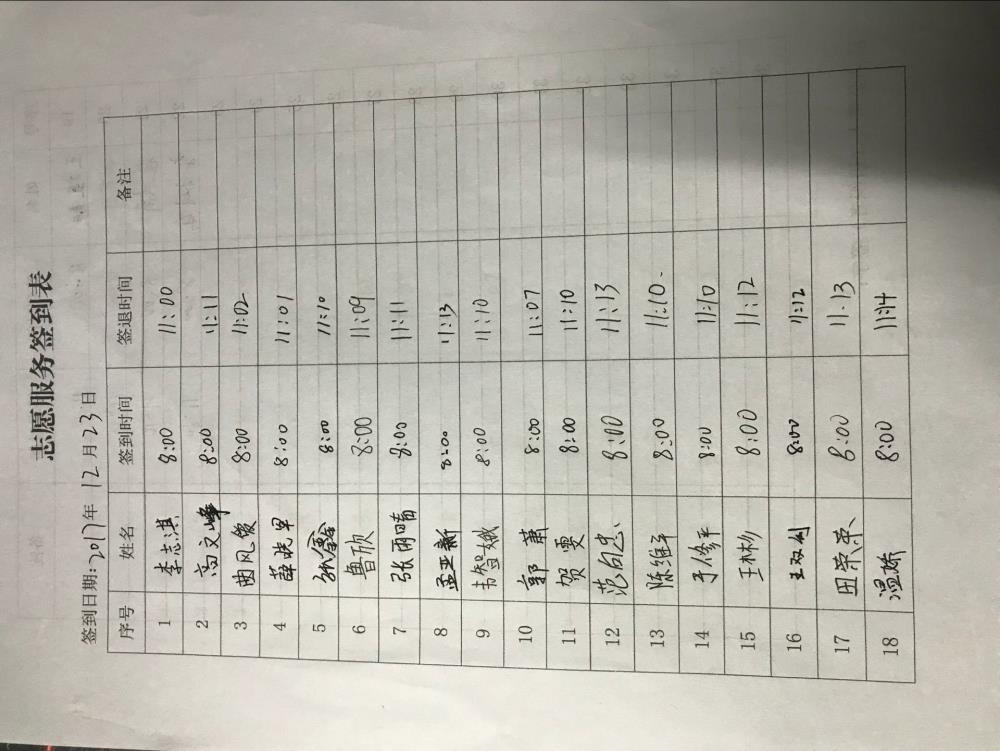 志愿服务签到表
签到日期:2017年12月23日
序号 姓名 签到时间 签退时间 备注
1 李志淇 8:00 11:00
2 高文峰 8:00 11:11
3 曲风俊 8:00 11:02
4 薛晓军 8:00 11:01
5 张鑫 8:00 11:10
6 鲁欣 8:00 11:09
7 张雨晴 8:00 11:11
8 孟亚新 8:00 11:13
9 韦智娥 8:00 11:10
10 郭萧 8:00 11:07
11 贺雯 8:00 11:10
12 范向忠 8:00 11:13
13 陈维平 8:00 11:10
14 于修平 8:00 11:10
15 王彬彬 8:00 11:12
16 王双利 8:00 11:12
17 田荣荣 8:00 11:13
18 温娇 8:00 11:14